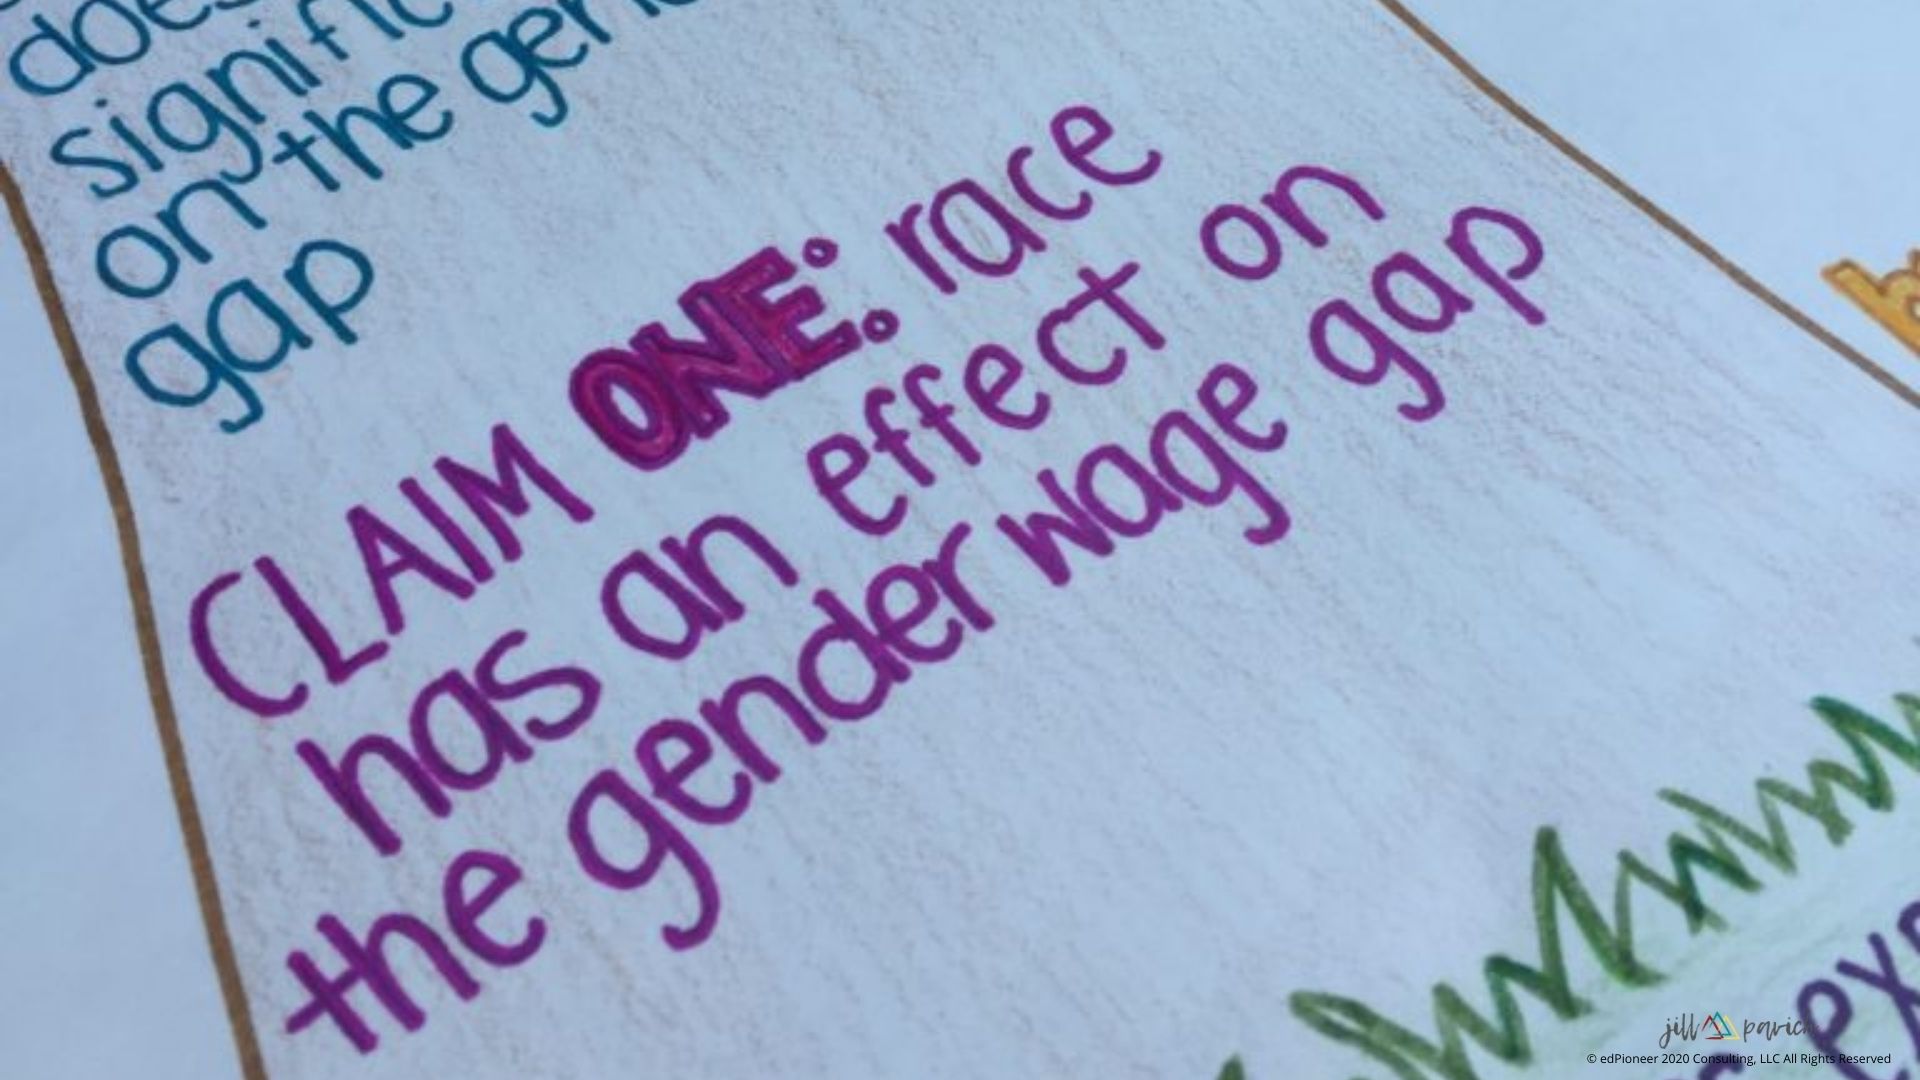 on the
gap
CLAIM ONE: race
has an effect on
the gender wage gap
jill pavich
© edPioneer 2020 Consulting, LLC All Rights Reserved